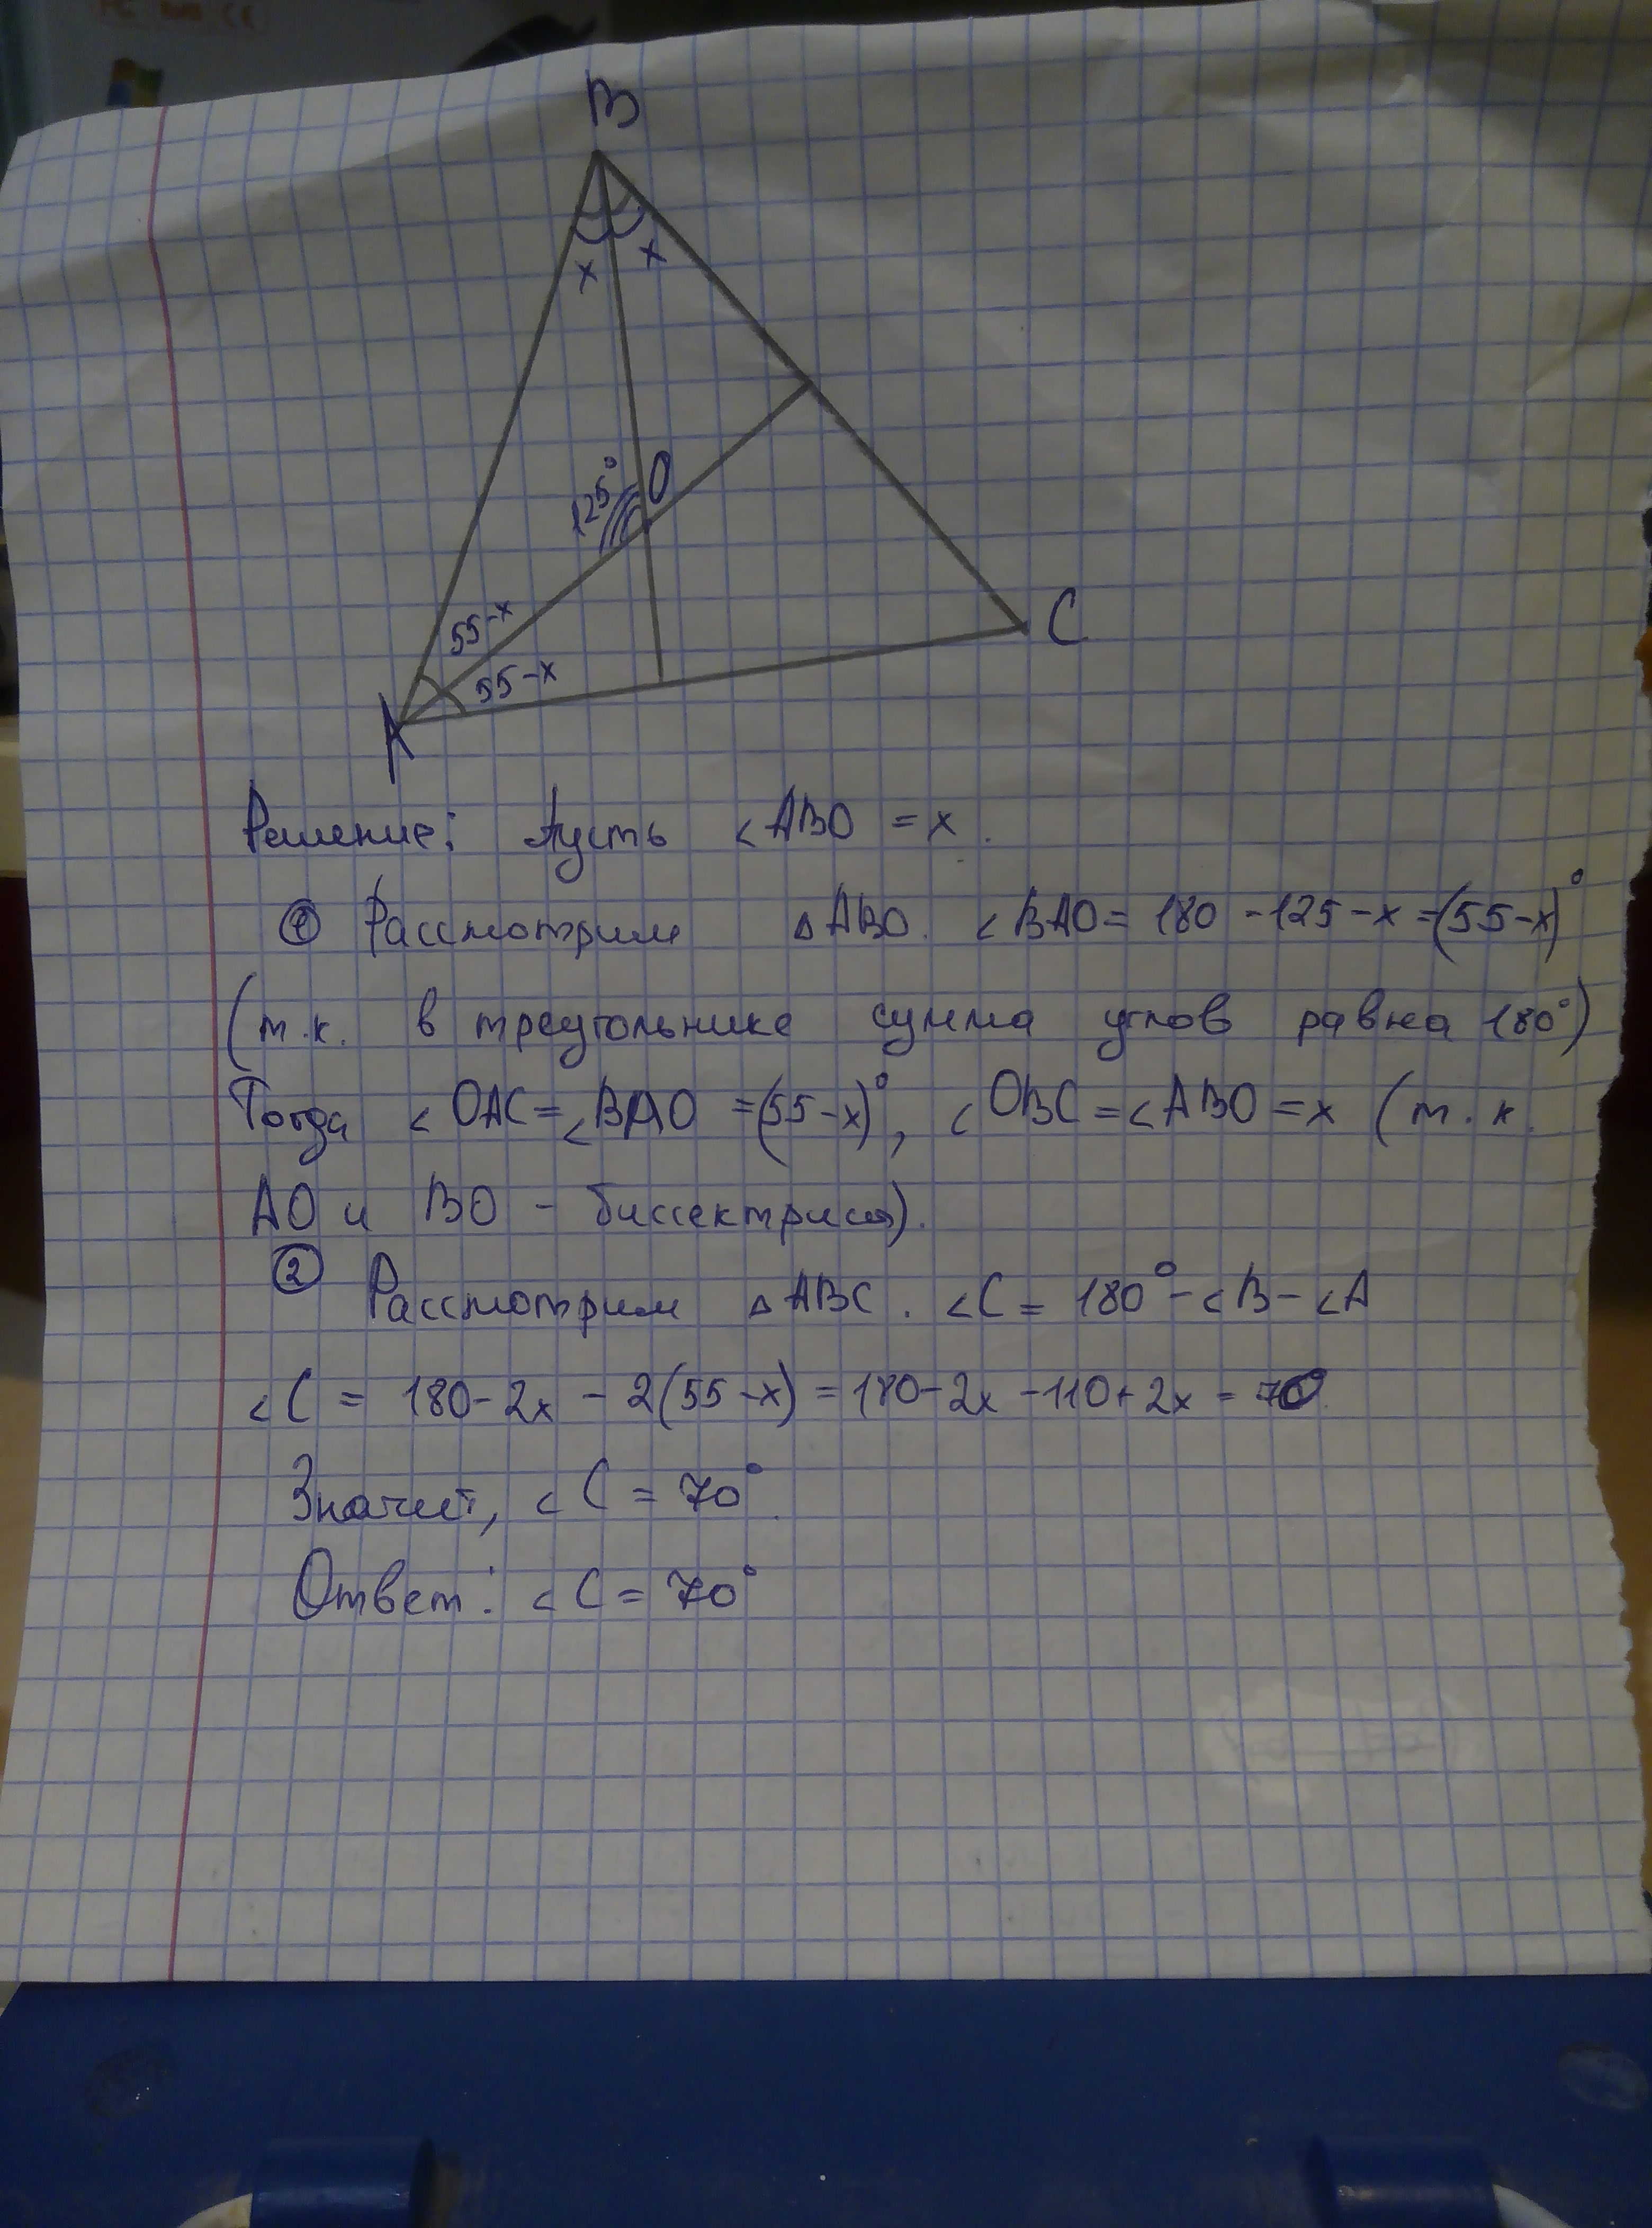 B
x x
125° O
55-x
55-x
C
A
Решение: Пусть ∠ABO = x.
① Рассмотрим △ABO. ∠BAO = 180 - 125 - x = (55-x)°
(т.к. в треугольнике сумма углов равна 180°)
Тогда ∠OAC = ∠BAO = (55-x)°, ∠OBC = ∠ABO = x (т.к.
AO и BO - биссектрисы).
② Рассмотрим △ABC. ∠C = 180° - ∠B - ∠A
∠C = 180 - 2x - 2(55-x) = 180 - 2x - 110 + 2x = 70.
Значит, ∠C = 70°.
Ответ: ∠C = 70°